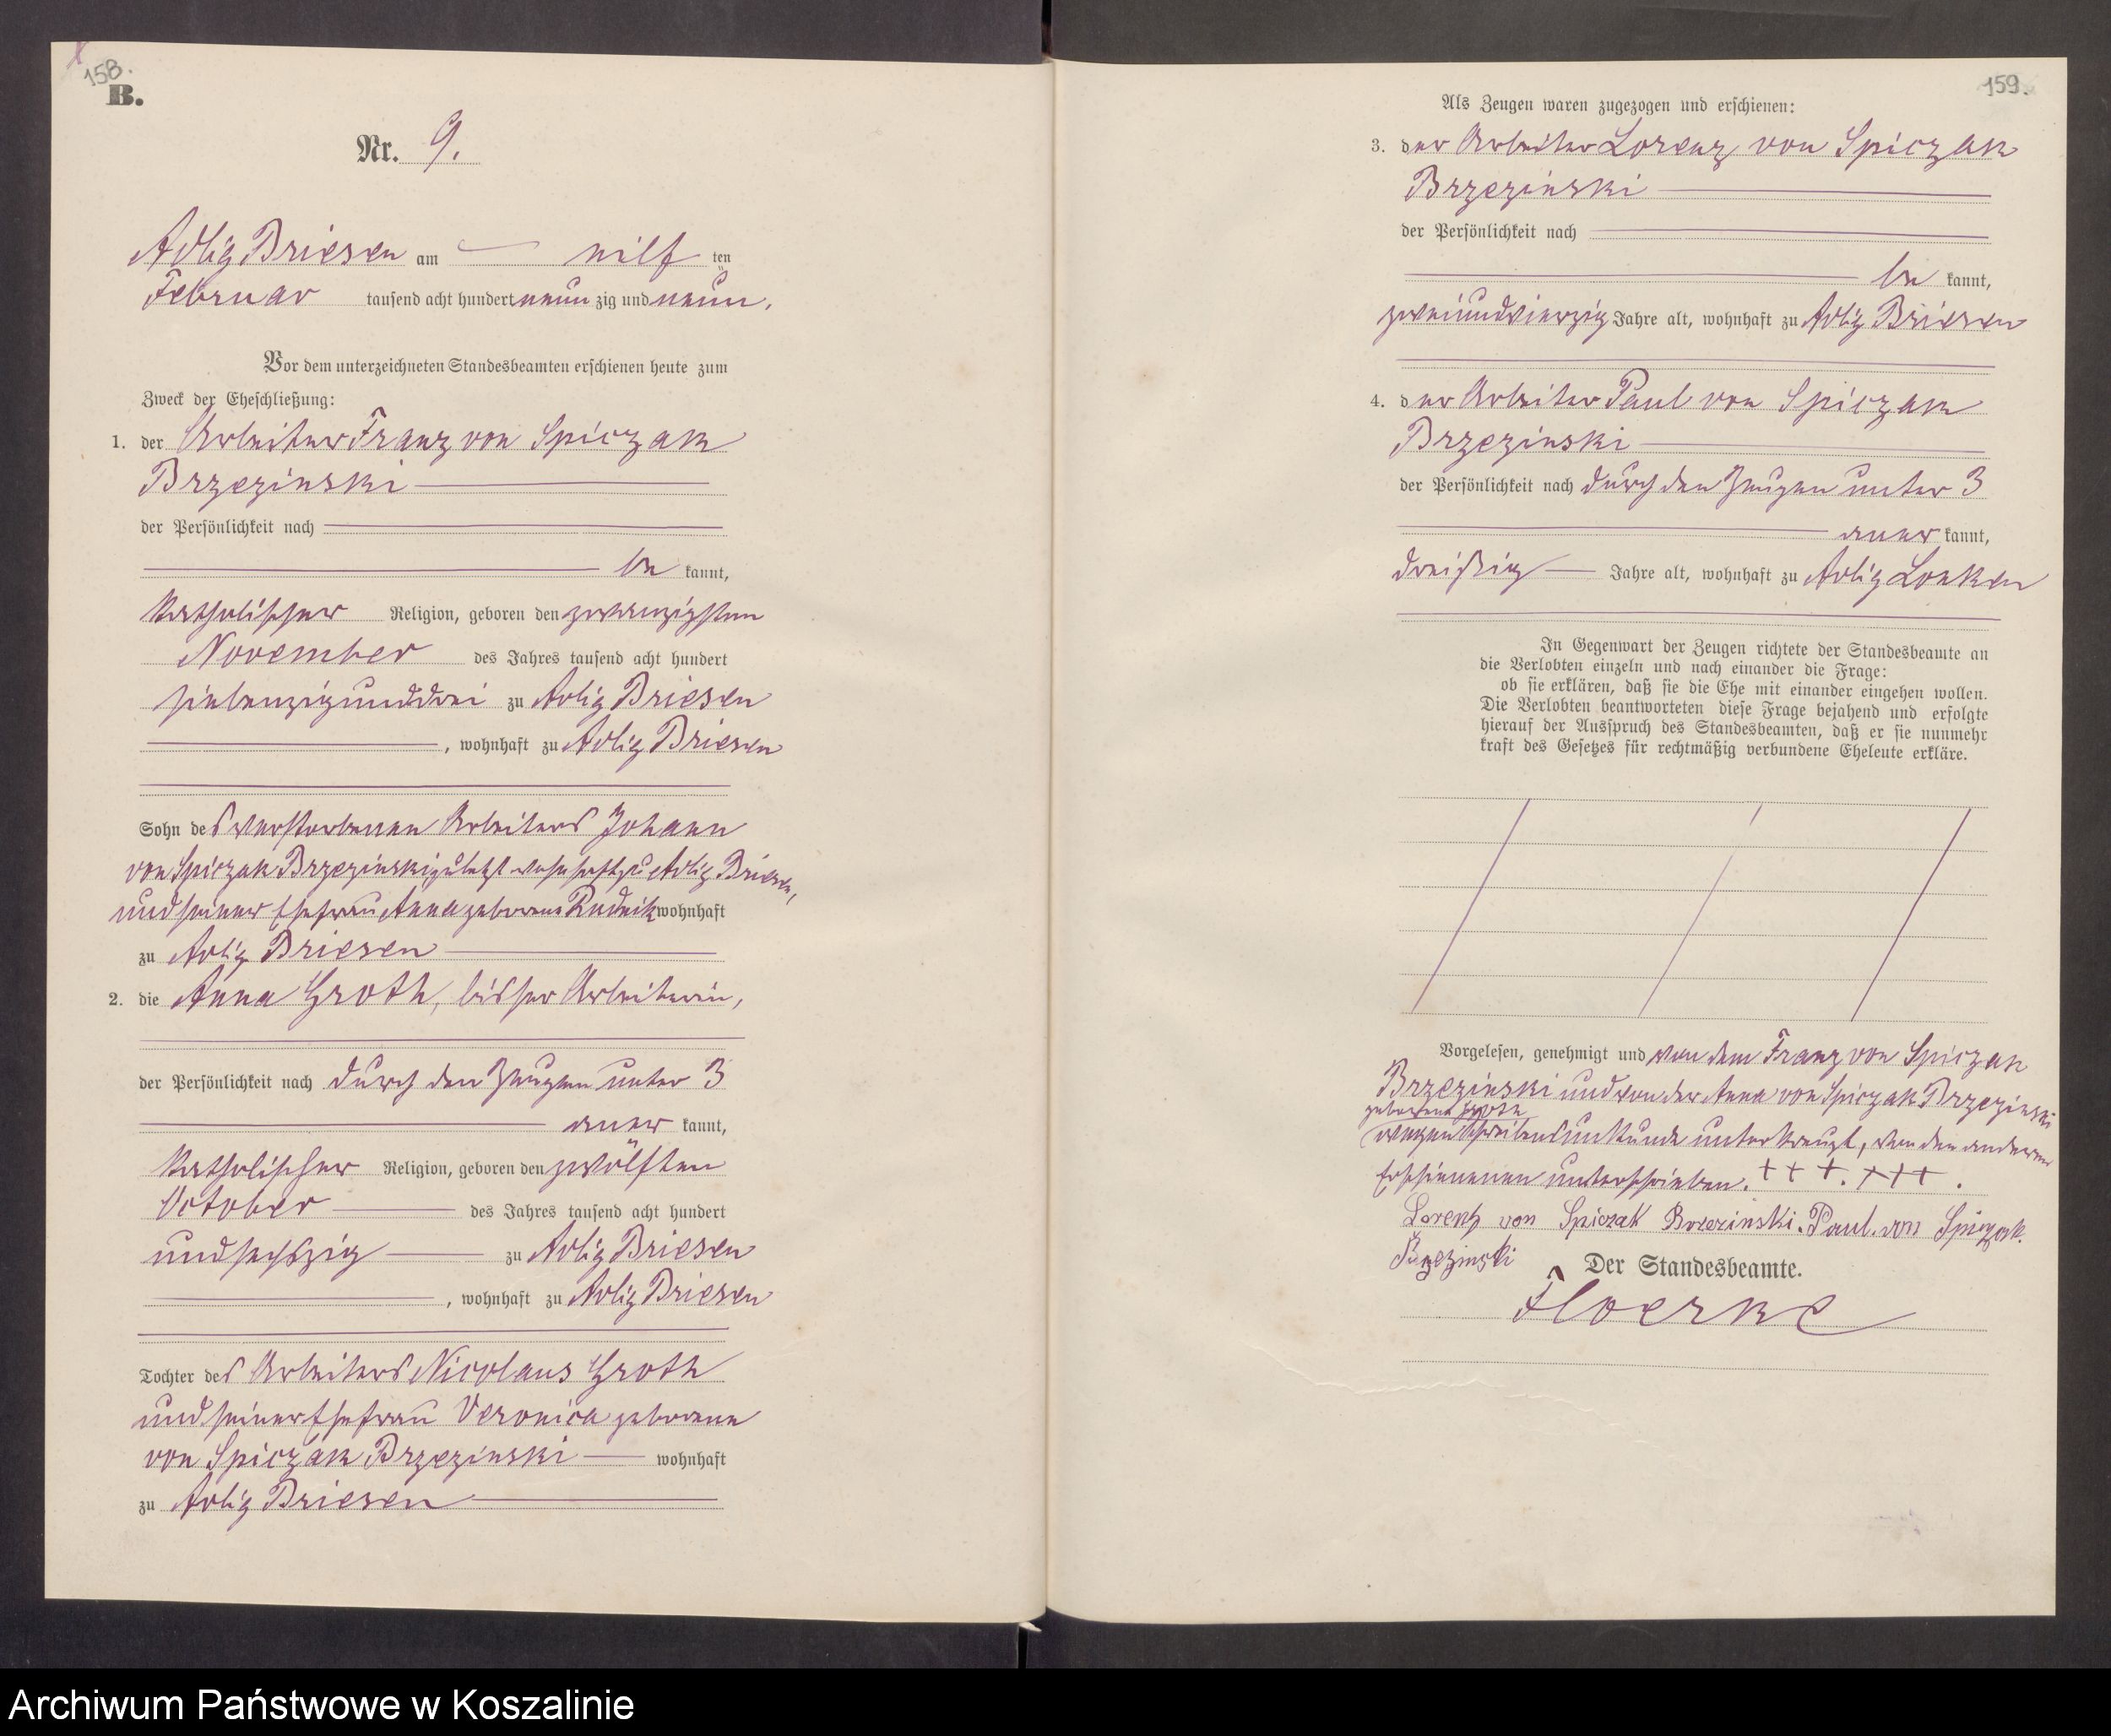 158.
B.
Nr. 9.
Adlig Briesen am eilf ten
Februar tausend acht hundert neun zig und neun.
Vor dem unterzeichneten Standesbeamten erschienen heute zum
Zweck der Eheschließung:
1. der Arbeiter Franz von Spiczak
Brzezinski
der Persönlichkeit nach
be kannt,
katholischer Religion, geboren den zwanzigsten
November des Jahres tausend acht hundert
siebenzigunddrei zu Adlig Briesen
, wohnhaft zu Adlig Briesen
Sohn des verstorbenen Arbeiters Johann
von Spiczak Brzezinski zuletzt wohnhaft zu Adlig Briesen,
und seiner Ehefrau Anna geborene Rudnik wohnhaft
zu Adlig Briesen
2. die Anna Groth, bisher Arbeiterin,
der Persönlichkeit nach durch den Zeugen unter 3
aner kannt,
katholischer Religion, geboren den zwölften
October des Jahres tausend acht hundert
undsechszig zu Adlig Briesen
, wohnhaft zu Adlig Briesen
Tochter des Arbeiters Nicolaus Groth
und seiner Ehefrau Veronica geborene
von Spiczak Brzezinski wohnhaft
zu Adlig Briesen
159.
Als Zeugen waren zugezogen und erschienen:
3. der Arbeiter Lorenz von Spiczak
Brzezinski
der Persönlichkeit nach
be kannt,
zweiundvierzig Jahre alt, wohnhaft zu Adlig Briesen
4. der Arbeiter Paul von Spiczak
Brzezinski
der Persönlichkeit nach durch den Zeugen unter 3
aner kannt,
dreißig Jahre alt, wohnhaft zu Adlig Lonken
In Gegenwart der Zeugen richtete der Standesbeamte an
die Verlobten einzeln und nach einander die Frage:
ob sie erklären, daß sie die Ehe mit einander eingehen wollen.
Die Verlobten beantworteten diese Frage bejahend und erfolgte
hierauf der Ausspruch des Standesbeamten, daß er sie nunmehr
kraft des Gesetzes für rechtmäßig verbundene Eheleute erkläre.
Vorgelesen, genehmigt und von dem Franz von Spiczak
Brzezinski und von der Anna von Spiczak Brzezinski
geborene Groth
wegen Schreibensunkunde unterkreuzt, von den anderen
Erschienenen unterschrieben. + + +. + + + .
Lorenz von Spiczak Brzezinski. Paul von Spiczak.
Brzezinski
Der Standesbeamte.
Floerke
Archiwum Państwowe w Koszalinie